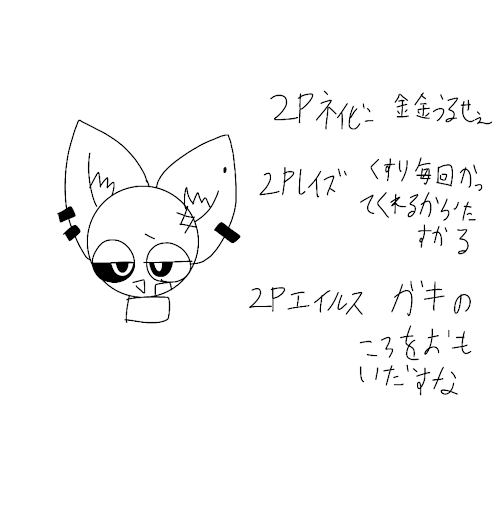 2Pネイビー 金金うるせぇ
2Pレイズ くすり毎回かっ
てくれるからた
すかる
2Pエイルス ガキの
ころをおも
いだすな